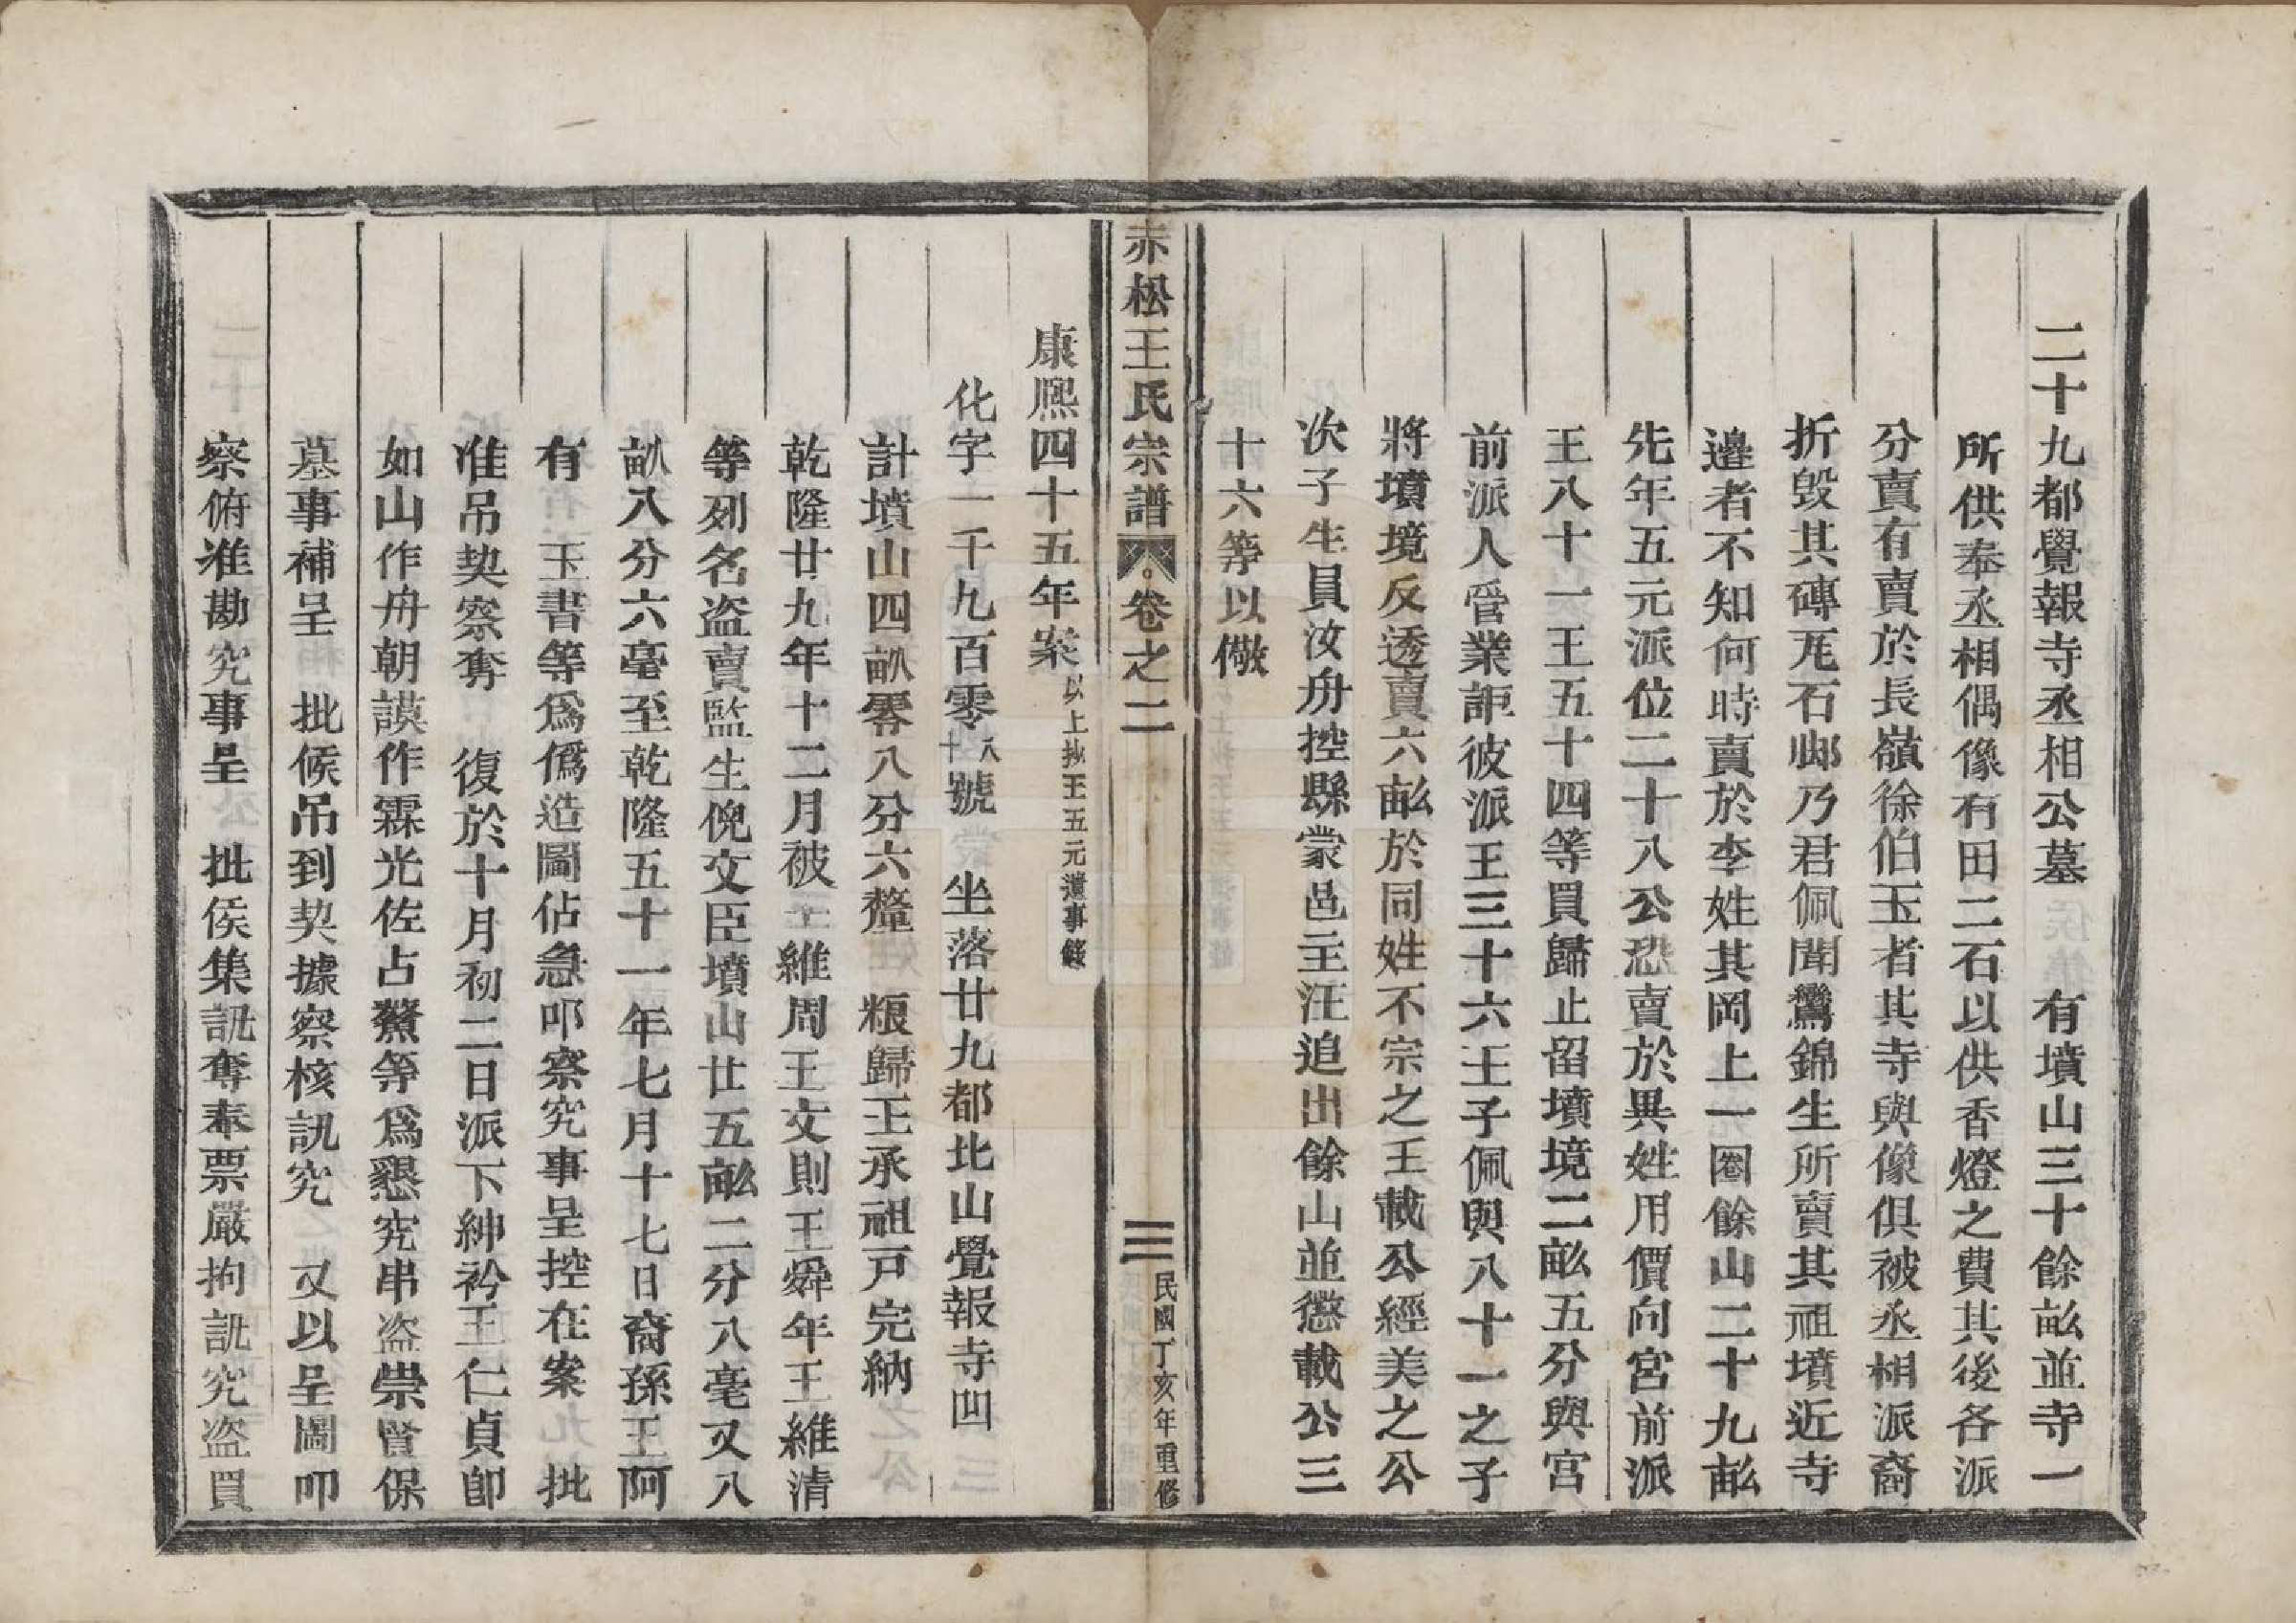 二十九都覺報寺丞相公墓　有墳山三十餘畝並寺一
所供奉丞相偶像有田二石以供香燈之費其後各派
分賣有賣於長嶺徐伯玉者其寺與像俱被丞相派裔
折毀其磚瓦石脚乃君佩聞鸞錦生所賣其祖墳近寺
邊者不知何時賣於李姓其岡上一圈餘山二十九畝
先年五元派位二十八公恐賣於異姓用價向宮前派
王八十一王五十四等買歸止留墳境二畝五分與宮
前派人管業詎彼派王三十六王子佩與八十一之子
將墳境反透賣六畝於同姓不宗之王載公經美之公
次子生員汝舟控縣蒙邑主汪追出餘山並懲載公三
十六等以儆
赤松王氏宗譜　卷之二　三　民國丁亥年重修
康熙四十五年案以上抄王五元遺事錄
化字一千九百零八十號　坐落廿九都比山覺報寺凹
計墳山四畝零八分六釐　粮歸王承祖戶完納
乾隆廿九年十二月被王維周王文則王舜年王維清
等列名盜賣監生倪文臣墳山廿五畝二分八毫又八
畝八分六毫至乾隆五十一年七月十七日裔孫王阿
有　玉書等爲僞造圖佔急叩察究事呈控在案　批
准吊契察奪　復於十月初二日派下紳衿王仁貞卽
如山作舟朝謨作霖光佐占鰲等爲懇究串盜祟賢保
墓事補呈　批候吊到契據察核訊究　又以呈圖叩
察俯准勘究事呈　批侯集訊奪奉票嚴拘訊究盜買